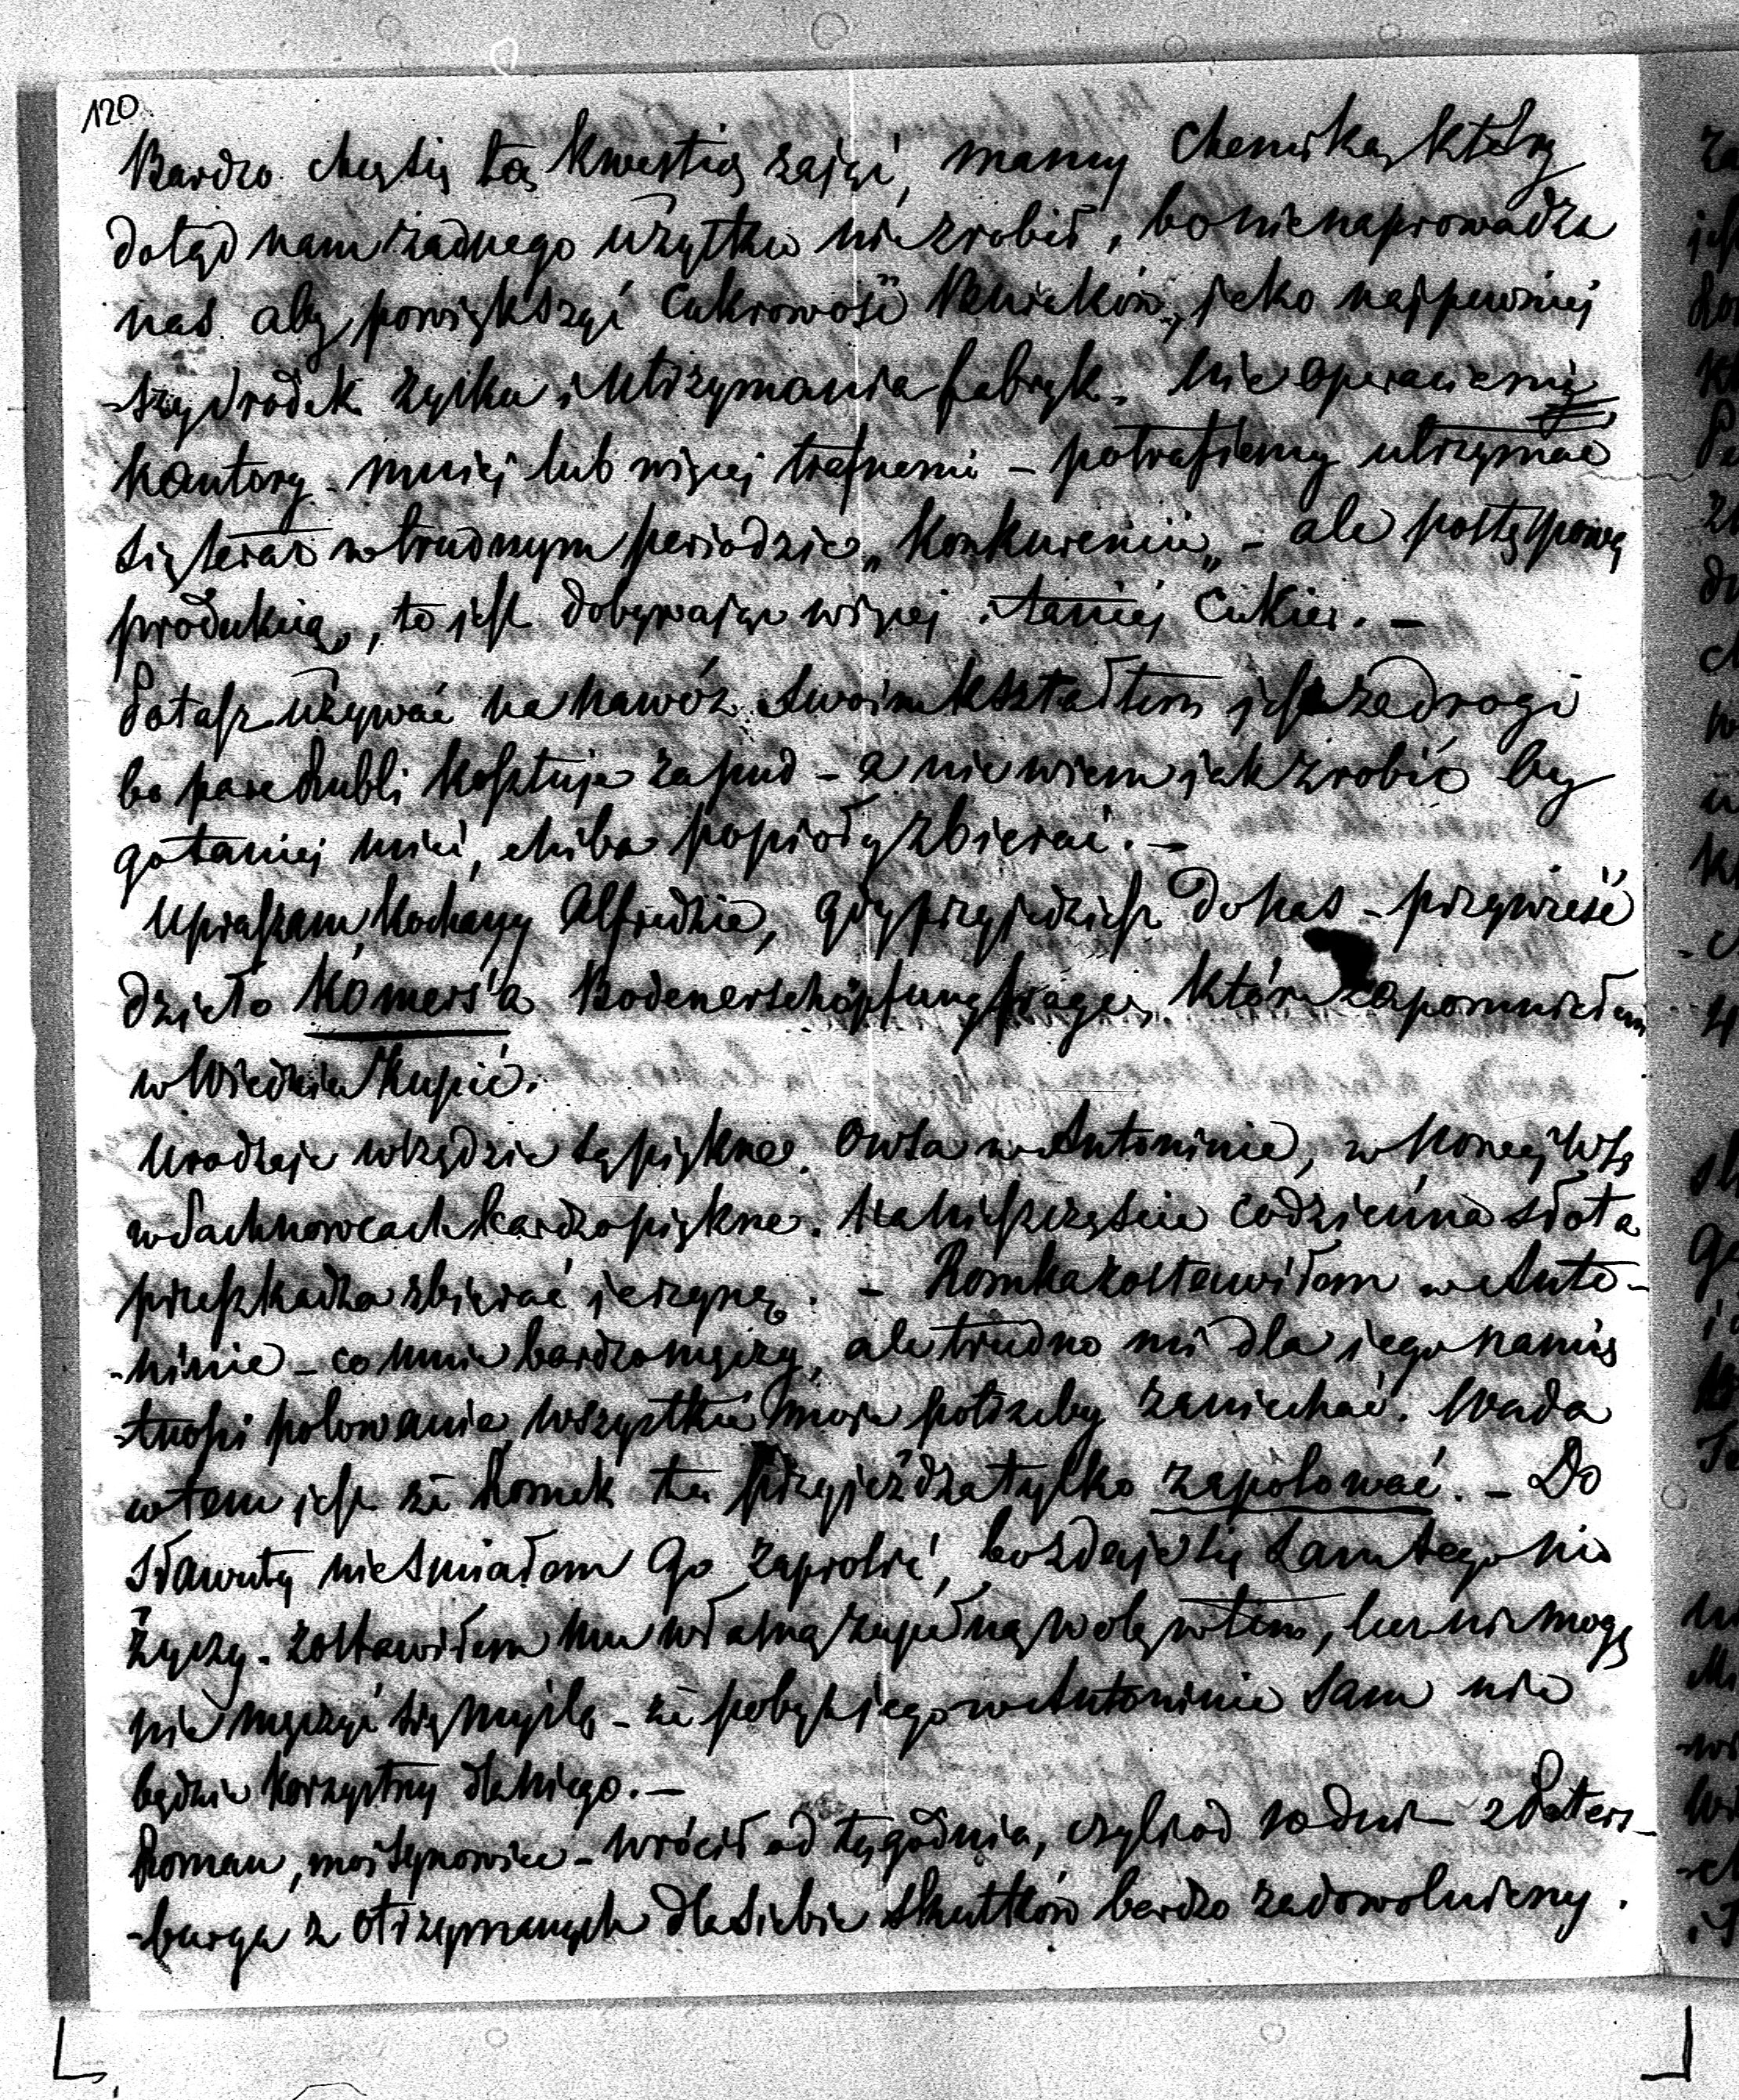 120
Bardzo chcę się tą kwestią zająć, mamy Chemika, który
dotąd nam żadnego użytku nie zrobił, bo nie naprowadza
nas aby powiększyć cukrowość Buraków, jako najpewniej
-szy środek zysku i utrzymania fabryk. Nie operaciami
kantory mniej lub więcej trafnemi – potrafiemy utrzymać
się teraz w trudnym periodzie „Konkurencii„ – ale postępową
produkcią, to jest dobywając więcej i taniej Cukier. –
Potasz używać na nawóz swoim kształtem jest za drogi
bo pare Rubli kosztuje za pud – a nie wiem jak zrobić by
go taniej mieć, chiba popioły zbierać. –
Upraszam, Kochany Alfredzie, gdy przyjedziesz do nas – przywieść
dzieło Komers'a Bodenerschöpfungsfrage, które zapomniałem
w Wiedniu kupić.
Urodzaje wszędzie są piękne. Owsa w Antoninie, w Nowej Wsi
w Sachnowcach bardzo piękne. Na nieszczęście codzienna słota
przeszkadza zbierać jarzynę. – Romka zostawiłem w Anto-
-ninie – co mnie bardzo męczy, ale trudno mi dla jego namię
-tności polowania wszystkie moje potrzeby zaniechać. Wada
w tem jest że Romek tu przyjeżdża tylko zapolować. – Do
Sławuty nie śmiałem Go zaprosić, bo zdaje się sam tego nie
życzy. Zostawiłem mu własną zupełną wolę w tem, lecz nie mogę
nie męczyć się myślą – że pobyt jego w Antoninie sam nie
będzie korzystny dla niego. –
Roman, mój synowiec – wrócił od tygodnia, czyli od 10 dni – z Peters-
-burga z otrzymanych dla siebie skutków bardzo zadowolniony.